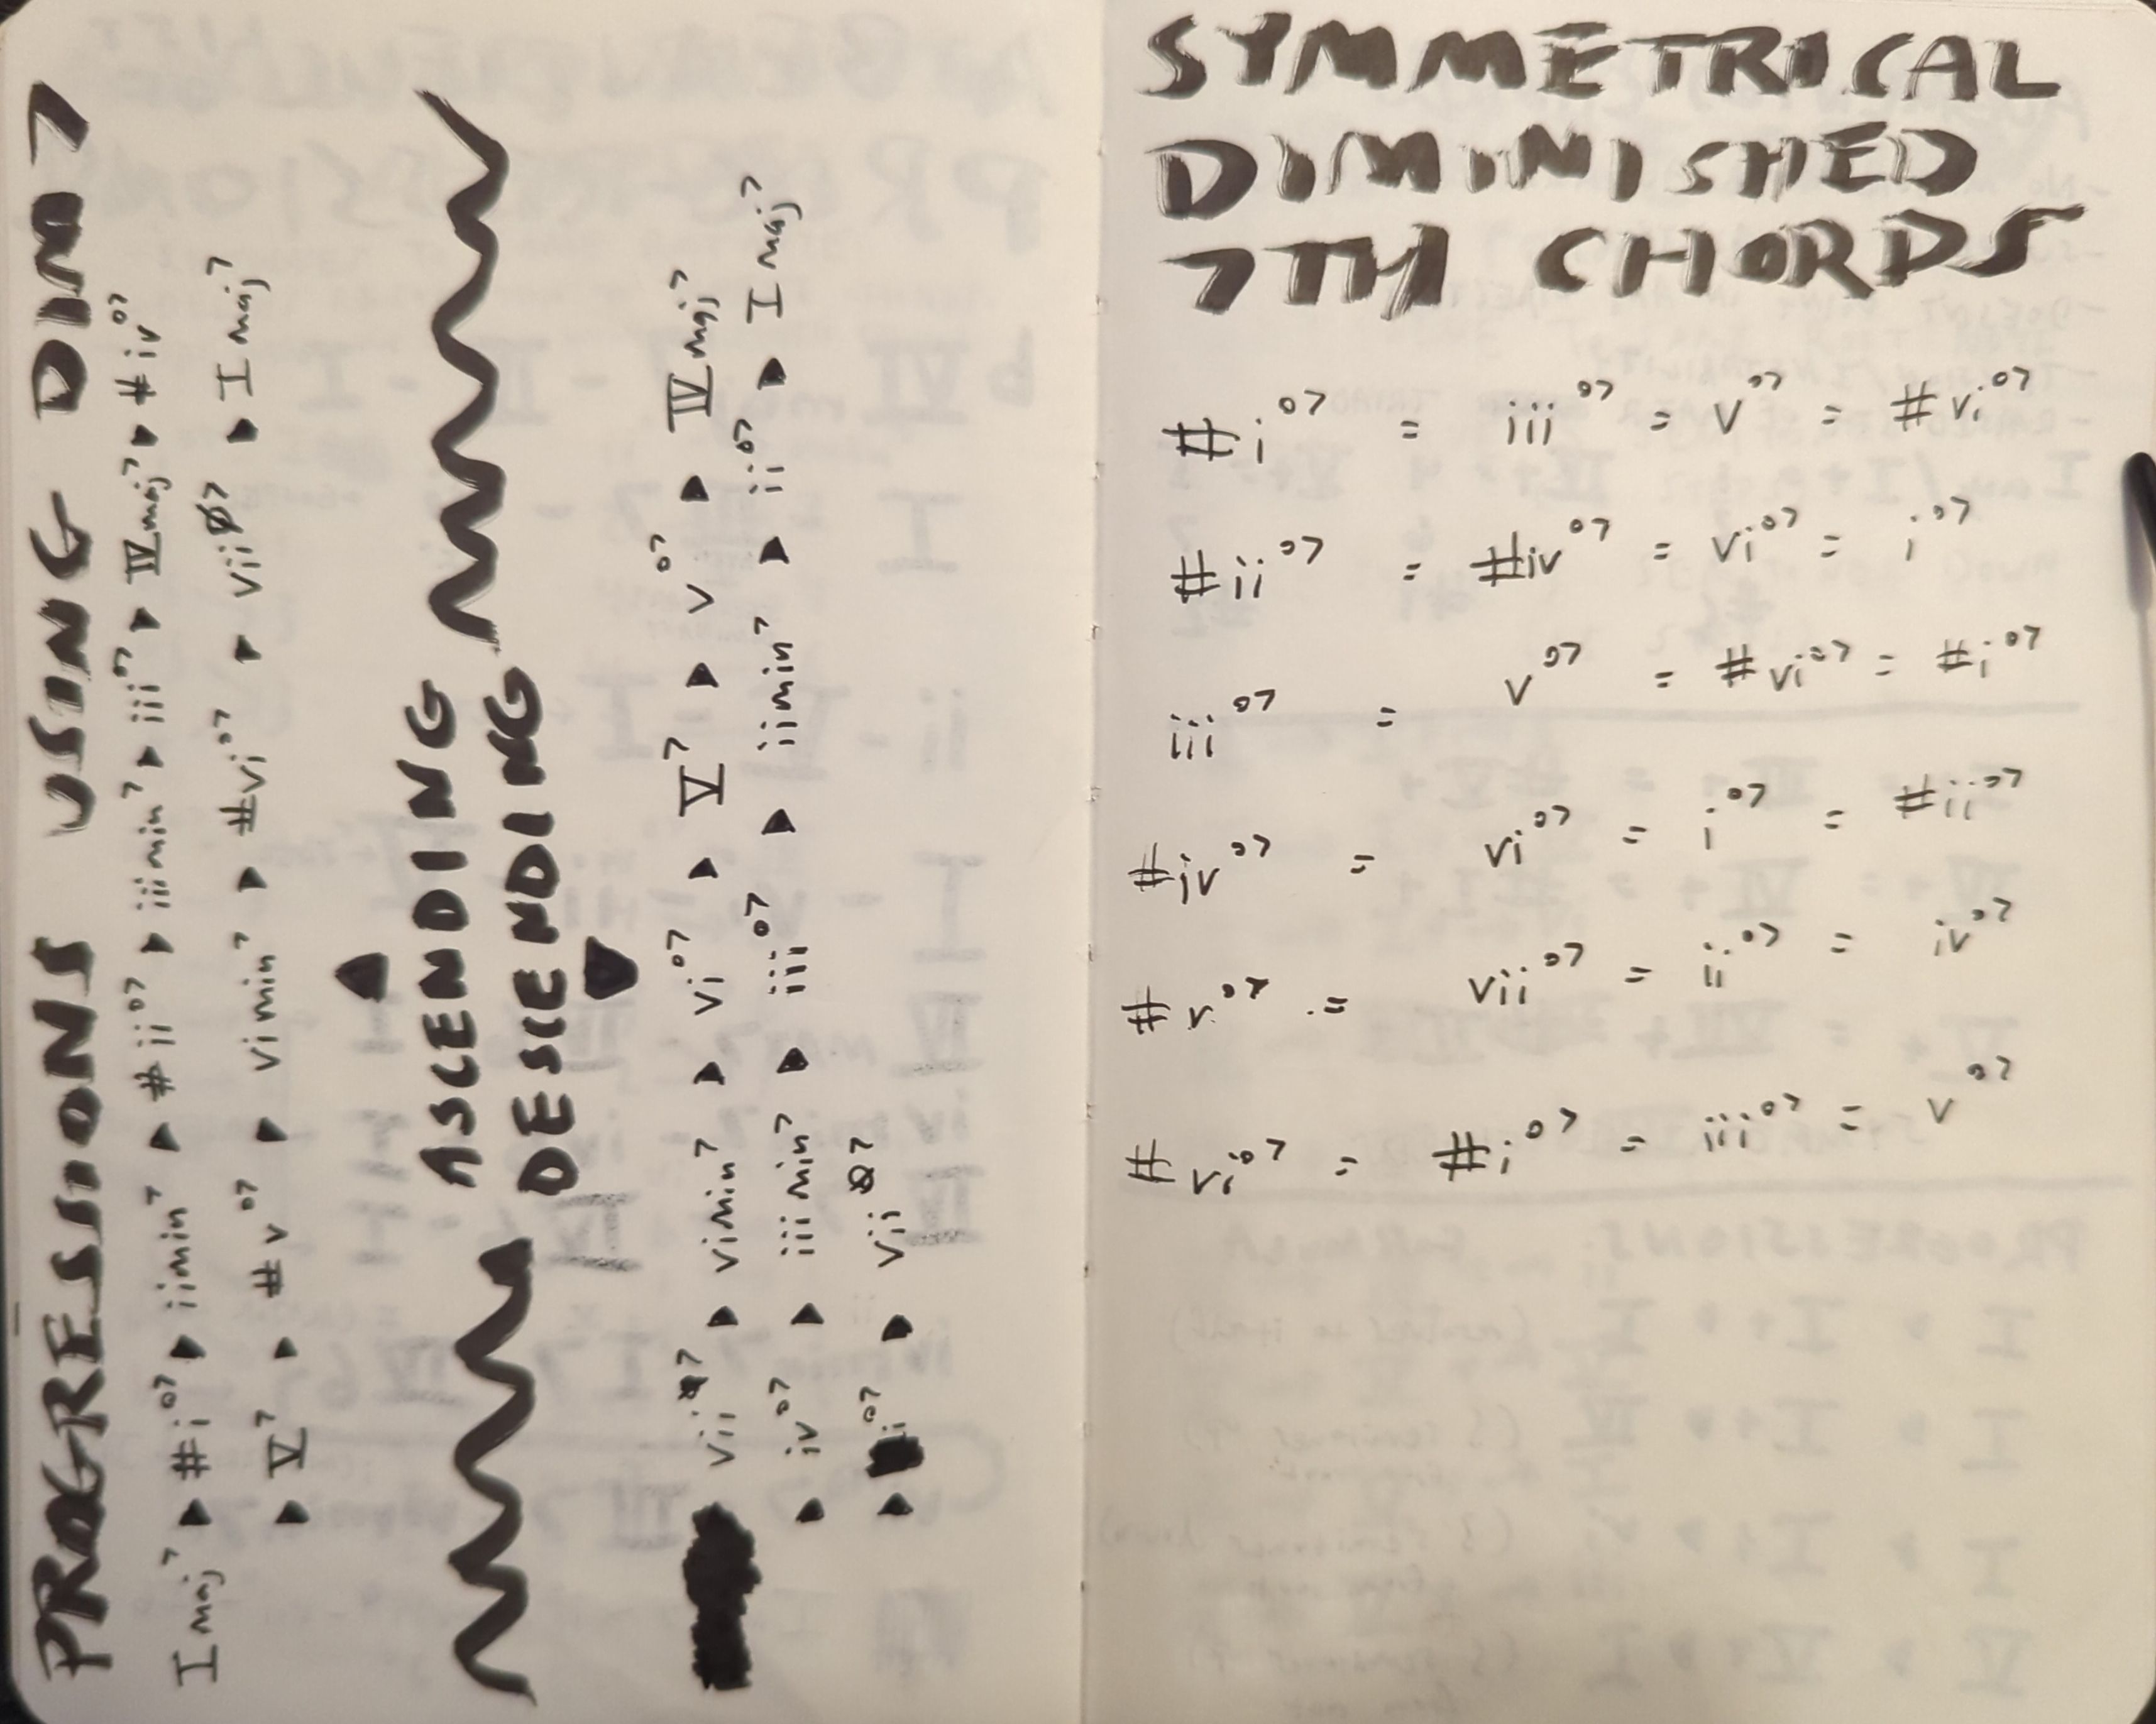 PROGRESSIONS USING DIM 7
Imaj7 ▶ #i°7 ▶ iimin7 ▶ #ii°7 ▶ iiimin7 ▶ iii°7 ▶ IVmaj7 ▶ #iv°7
▶ V7 ▶ #v°7 ▶ vimin7 ▶ #vi°7 ▶ viiø7 ▶ Imaj7
ASCENDING
DESCENDING
viiø7 ▶ vimin7 ▶ vi°7 ▶ V7 ▶ v°7 ▶ IVmaj7
▶ iv°7 ▶ iiimin7 ▶ iii°7 ▶ iimin7 ▶ ii°7 ▶ Imaj7
▶ i°7 ▶ viiø7
SYMMETRICAL
DIMINISHED
7TH CHORDS
#i°7 = iii°7 = v°7 = #vi°7
#ii°7 = #iv°7 = vi°7 = i°7
iii°7 = v°7 = #vi°7 = #i°7
#iv°7 = vi°7 = i°7 = #ii°7
#v°7 = vii°7 = ii°7 = iv°7
#vi°7 = #i°7 = iii°7 = v°7